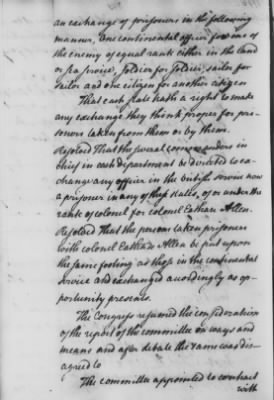 an exchange of prisoners in the following
manner, One continental officer for one of
the enemy of equal rank either in the land
or sea service, soldier for soldier, sailor for
sailor and one citizen for another citizen
That each state hath a right to make
any exchange they think proper for pri-
soners taken from them or by them.
Resolved That the several commanders in
chief in each department be directed to ex-
change any officer in the british service now
a prisoner in any of these states, of or under the
rank of colonel for colonel Eathan Allen.
Resolved That the persons taken prisoners
with colonel Eathan Allen be put upon
the same footing as those in the continental
service and exchanged accordingly as op-
portunity presents.
The Congress resumed the consideration
of the report of the committee on ways and
means and after debate the same was dis-
agreed to
The committee appointed to contract
with